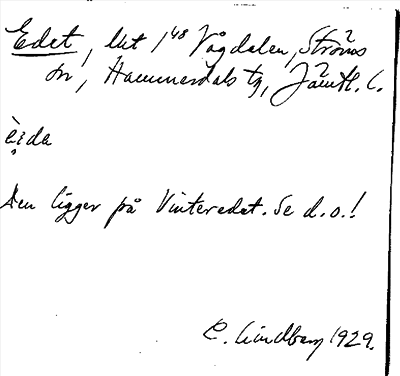 Edet, lht 1⁴⁸ Vågdalen, Ströms
sn, Hammerdals tg, Jämtl. l.
è̩ida
Den ligger på Vinteredet. Se d.o.!
C. Lindberg 1929.